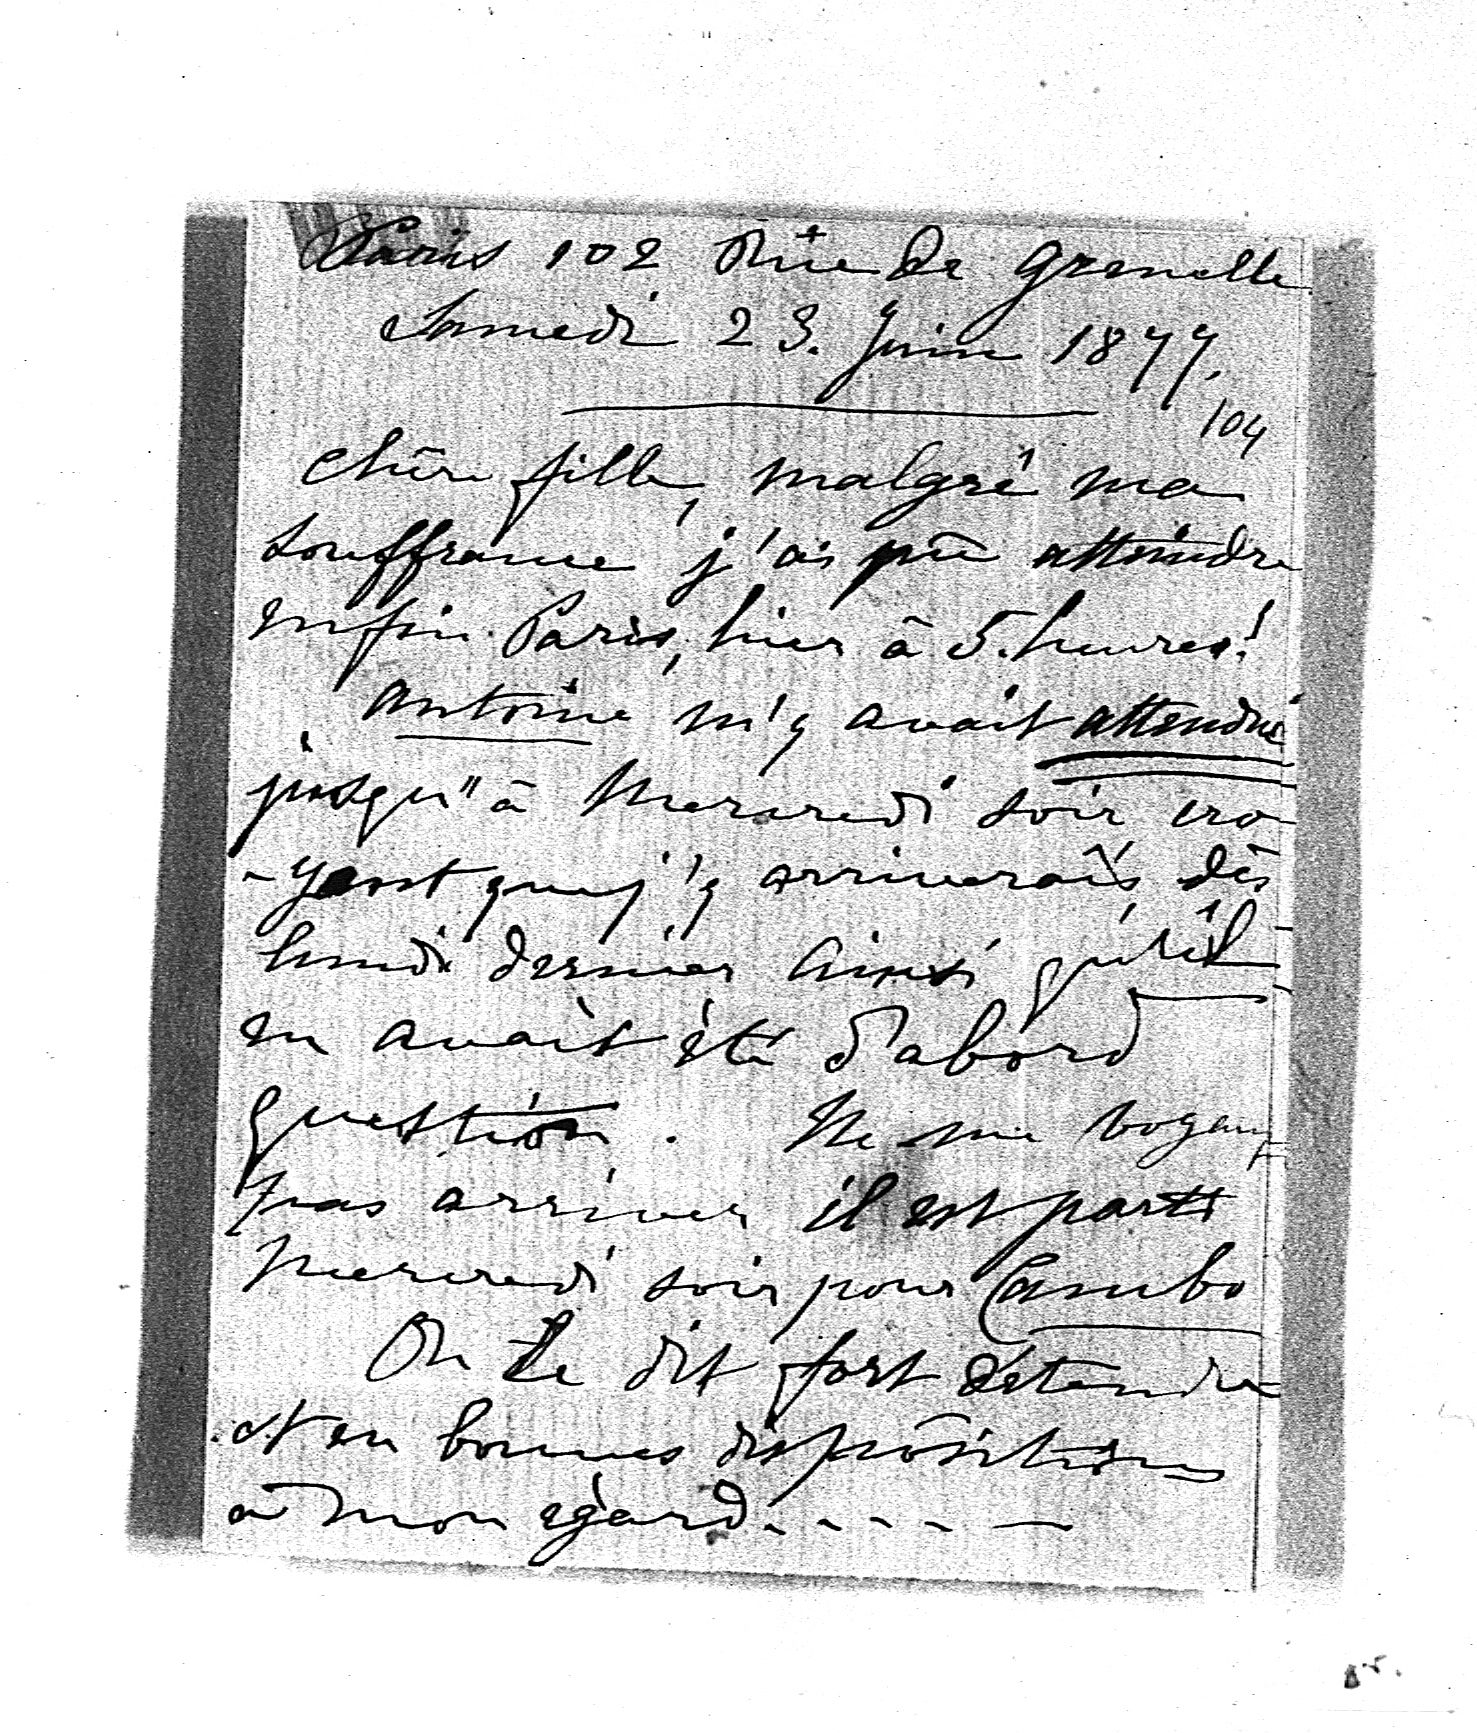 Paris 102 Rûe de Grenelle
Samedi 23. Juin 1877.
104
Chère fille, malgré ma
souffrance j'ai pû atteindre
enfin Paris, hier à 5. heures!
Antoine m'y avait attendue
jusqu'à Mercredi soir cro-
-yant que j'y arriverais dès
lundi dernier ainsi qu'il
en avait été d'abord
question. Ne me voyant
pas arriver il est parti
Mercredi soir pour Cambo
On le dit fort détendu
et en bonnes dispositions
à mon égard.....